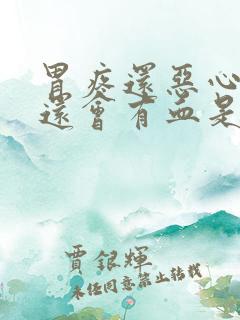 胃疼還惡心
還會有血是
賈銀輝
未經同意禁止轉載